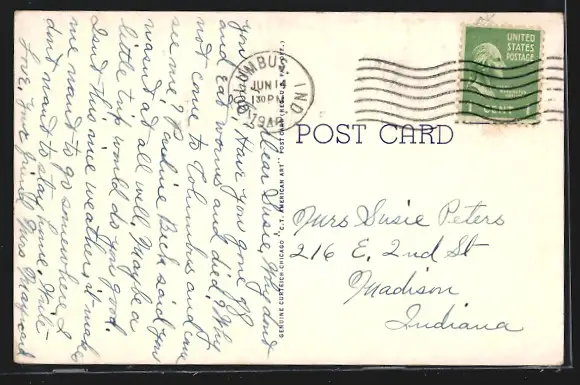 Dear Susie, Why dont
you write, Have you gone off
and eat worms and died? Why
not come to Columbus and
see me? Pauline Beck said you
wasn't at all well. Maybe a
little trip would do you good.
Isn't this nice weather, it makes
me want to go somewhere I
don't want to stay home. Write
Love, your friend Mrs
GENUINE CURTEICH-CHICAGO "C.T. AMERICAN ART" POST CARD (REG. U.S. PAT. OFF.)
COLUMBUS IND.
JUN 1
130PM
UNITED
STATES
POSTAGE
1 CENT
POST CARD
Mrs Susie Peters
216 E. 2nd St
Madison
Indiana